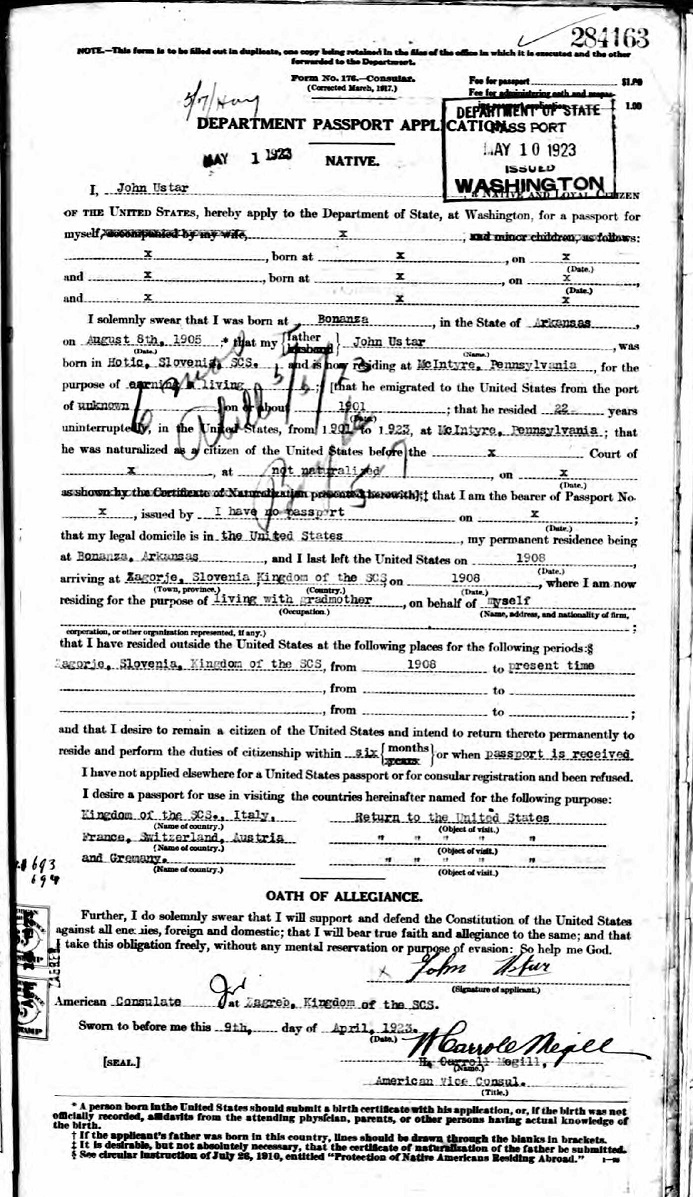 284163
NOTE.—This form is to be filled out in duplicate, one copy being retained in the files of the office in which it is executed and the other
forwarded to the Department.
Form No. 176.—Consular.
(Corrected March, 1917.)
Fee for passport $1.00
Fee for administering oath and
1.00
DEPARTMENT PASSPORT APPLICATION
NATIVE.
MAY 1 1923
DEPARTMENT OF STATE
PASSPORT
MAY 10 1923
ISSUED
WASHINGTON
I, John Ustar, a NATIVE AND LOYAL CITIZEN
OF THE UNITED STATES, hereby apply to the Department of State, at Washington, for a passport for
myself, accompanied by my wife, x, and minor children, as follows:
x, born at x, on x
(Date.)
and x, born at x, on x
(Date.)
and x x x
I solemnly swear that I was born at Bonanza, in the State of Arkansas,
on August 8th, 1905 * that my {father husband} John Ustar, was
(Date.) (Name.)
born in Hotic, Slovenia, SCS. and is now residing at McIntyre, Pennsylvania, for the
purpose of earning a living; [that he emigrated to the United States from the port
of unknown on or about 1901; that he resided 22 years
(Date.)
uninterruptedly, in the United States, from 1901 to 1923, at McIntyre, Pennsylvania; that
he was naturalized as a citizen of the United States before the x Court of
x, at not naturalized, on x
(Date.)
as shown by the Certificate of Naturalization presented herewith];‡ that I am the bearer of Passport No.
x, issued by I have no passport on x;
(Date.)
that my legal domicile is in the United States, my permanent residence being
at Bonanza, Arkansas, and I last left the United States on 1908
(Date.)
arriving at Zagorje, Slovenia Kingdom of the SCS, on 1908, where I am now
(Town, province.) (Country.) (Date.)
residing for the purpose of living with gradmother, on behalf of myself
(Occupation.) (Name, address, and nationality of firm,
;
corporation, or other organization represented, if any.)
that I have resided outside the United States at the following places for the following periods:§
Zagorje, Slovenia, Kingdom of the SCS, from 1908 to present time
, from to
, from to ;
and that I desire to remain a citizen of the United States and intend to return thereto permanently to
reside and perform the duties of citizenship within six {months years} or when passport is received
I have not applied elsewhere for a United States passport or for consular registration and been refused.
I desire a passport for use in visiting the countries hereinafter named for the following purpose:
Kingdom of the SCS., Italy, Return to the United States
(Name of country.) (Object of visit.)
France, Switzerland, Austria " " " "
(Name of country.) (Object of visit.)
and Gremany. " " " "
(Name of country.) (Object of visit.)
693
694
OATH OF ALLEGIANCE.
Further, I do solemnly swear that I will support and defend the Constitution of the United States
against all enemies, foreign and domestic; that I will bear true faith and allegiance to the same; and that
I take this obligation freely, without any mental reservation or purpose of evasion: So help me God.
x John Ustar
(Signature of applicant.)
American Consulate at Zagreb, Kingdom of the SCS.
Sworn to before me this 9th, day of April, 1923.
(Date.)
H Carroll Megill
[SEAL.]
H. Carroll Megill,
(Name.)
American Vice Consul.
(Title.)
* A person born in the United States should submit a birth certificate with his application, or, if the birth was not
officially recorded, affidavits from the attending physician, parents, or other persons having actual knowledge of
the birth.
† If the applicant's father was born in this country, lines should be drawn through the blanks in brackets.
‡ It is desirable, but not absolutely necessary, that the certificate of naturalization of the father be submitted.
§ See circular instruction of July 26, 1910, entitled "Protection of Native Americans Residing Abroad."